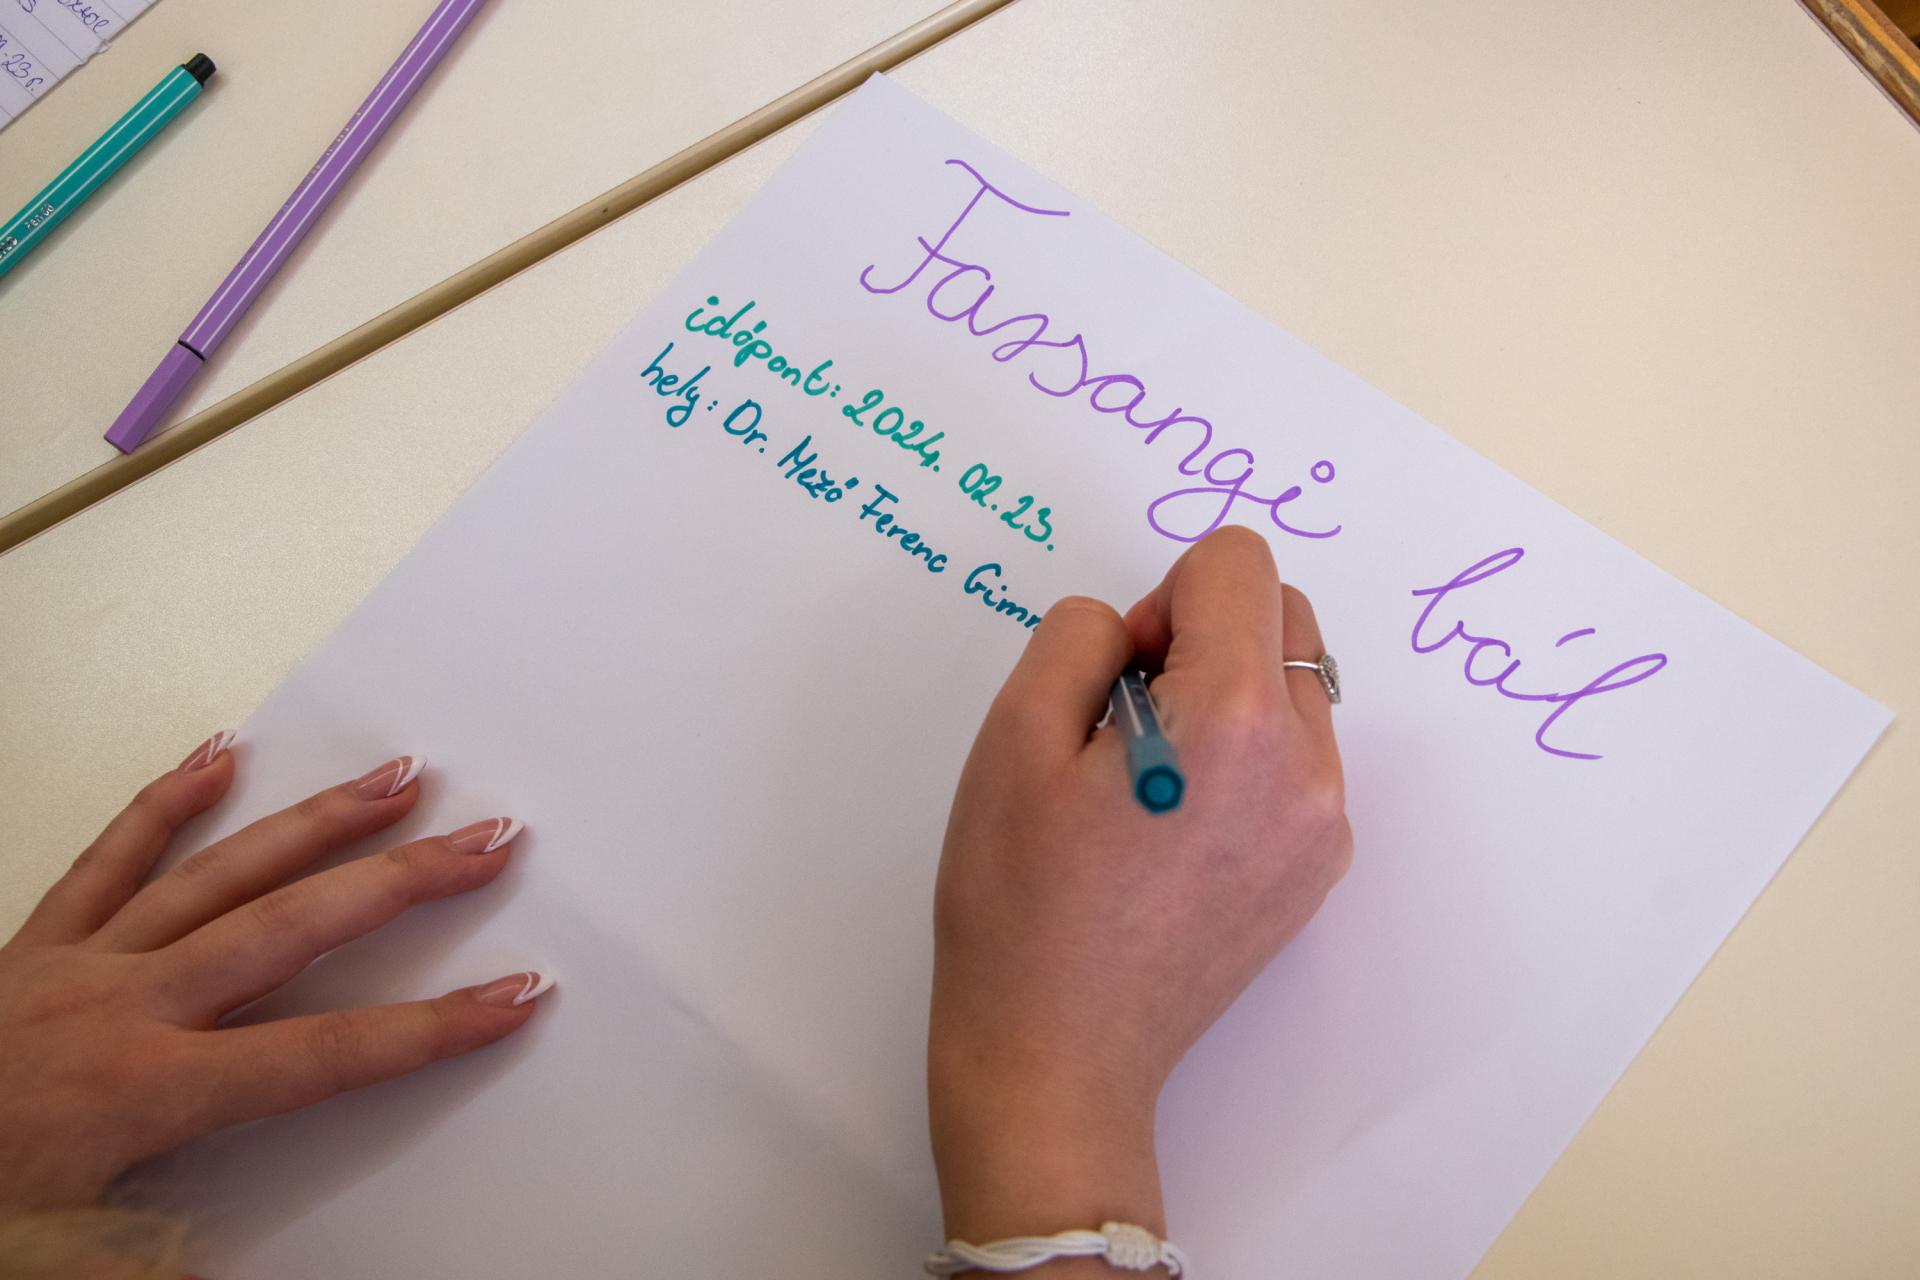 Fassangi bál
időpont: 2024. 02.23.
hely: Dr. Mező Ferenc Gimn
23r.